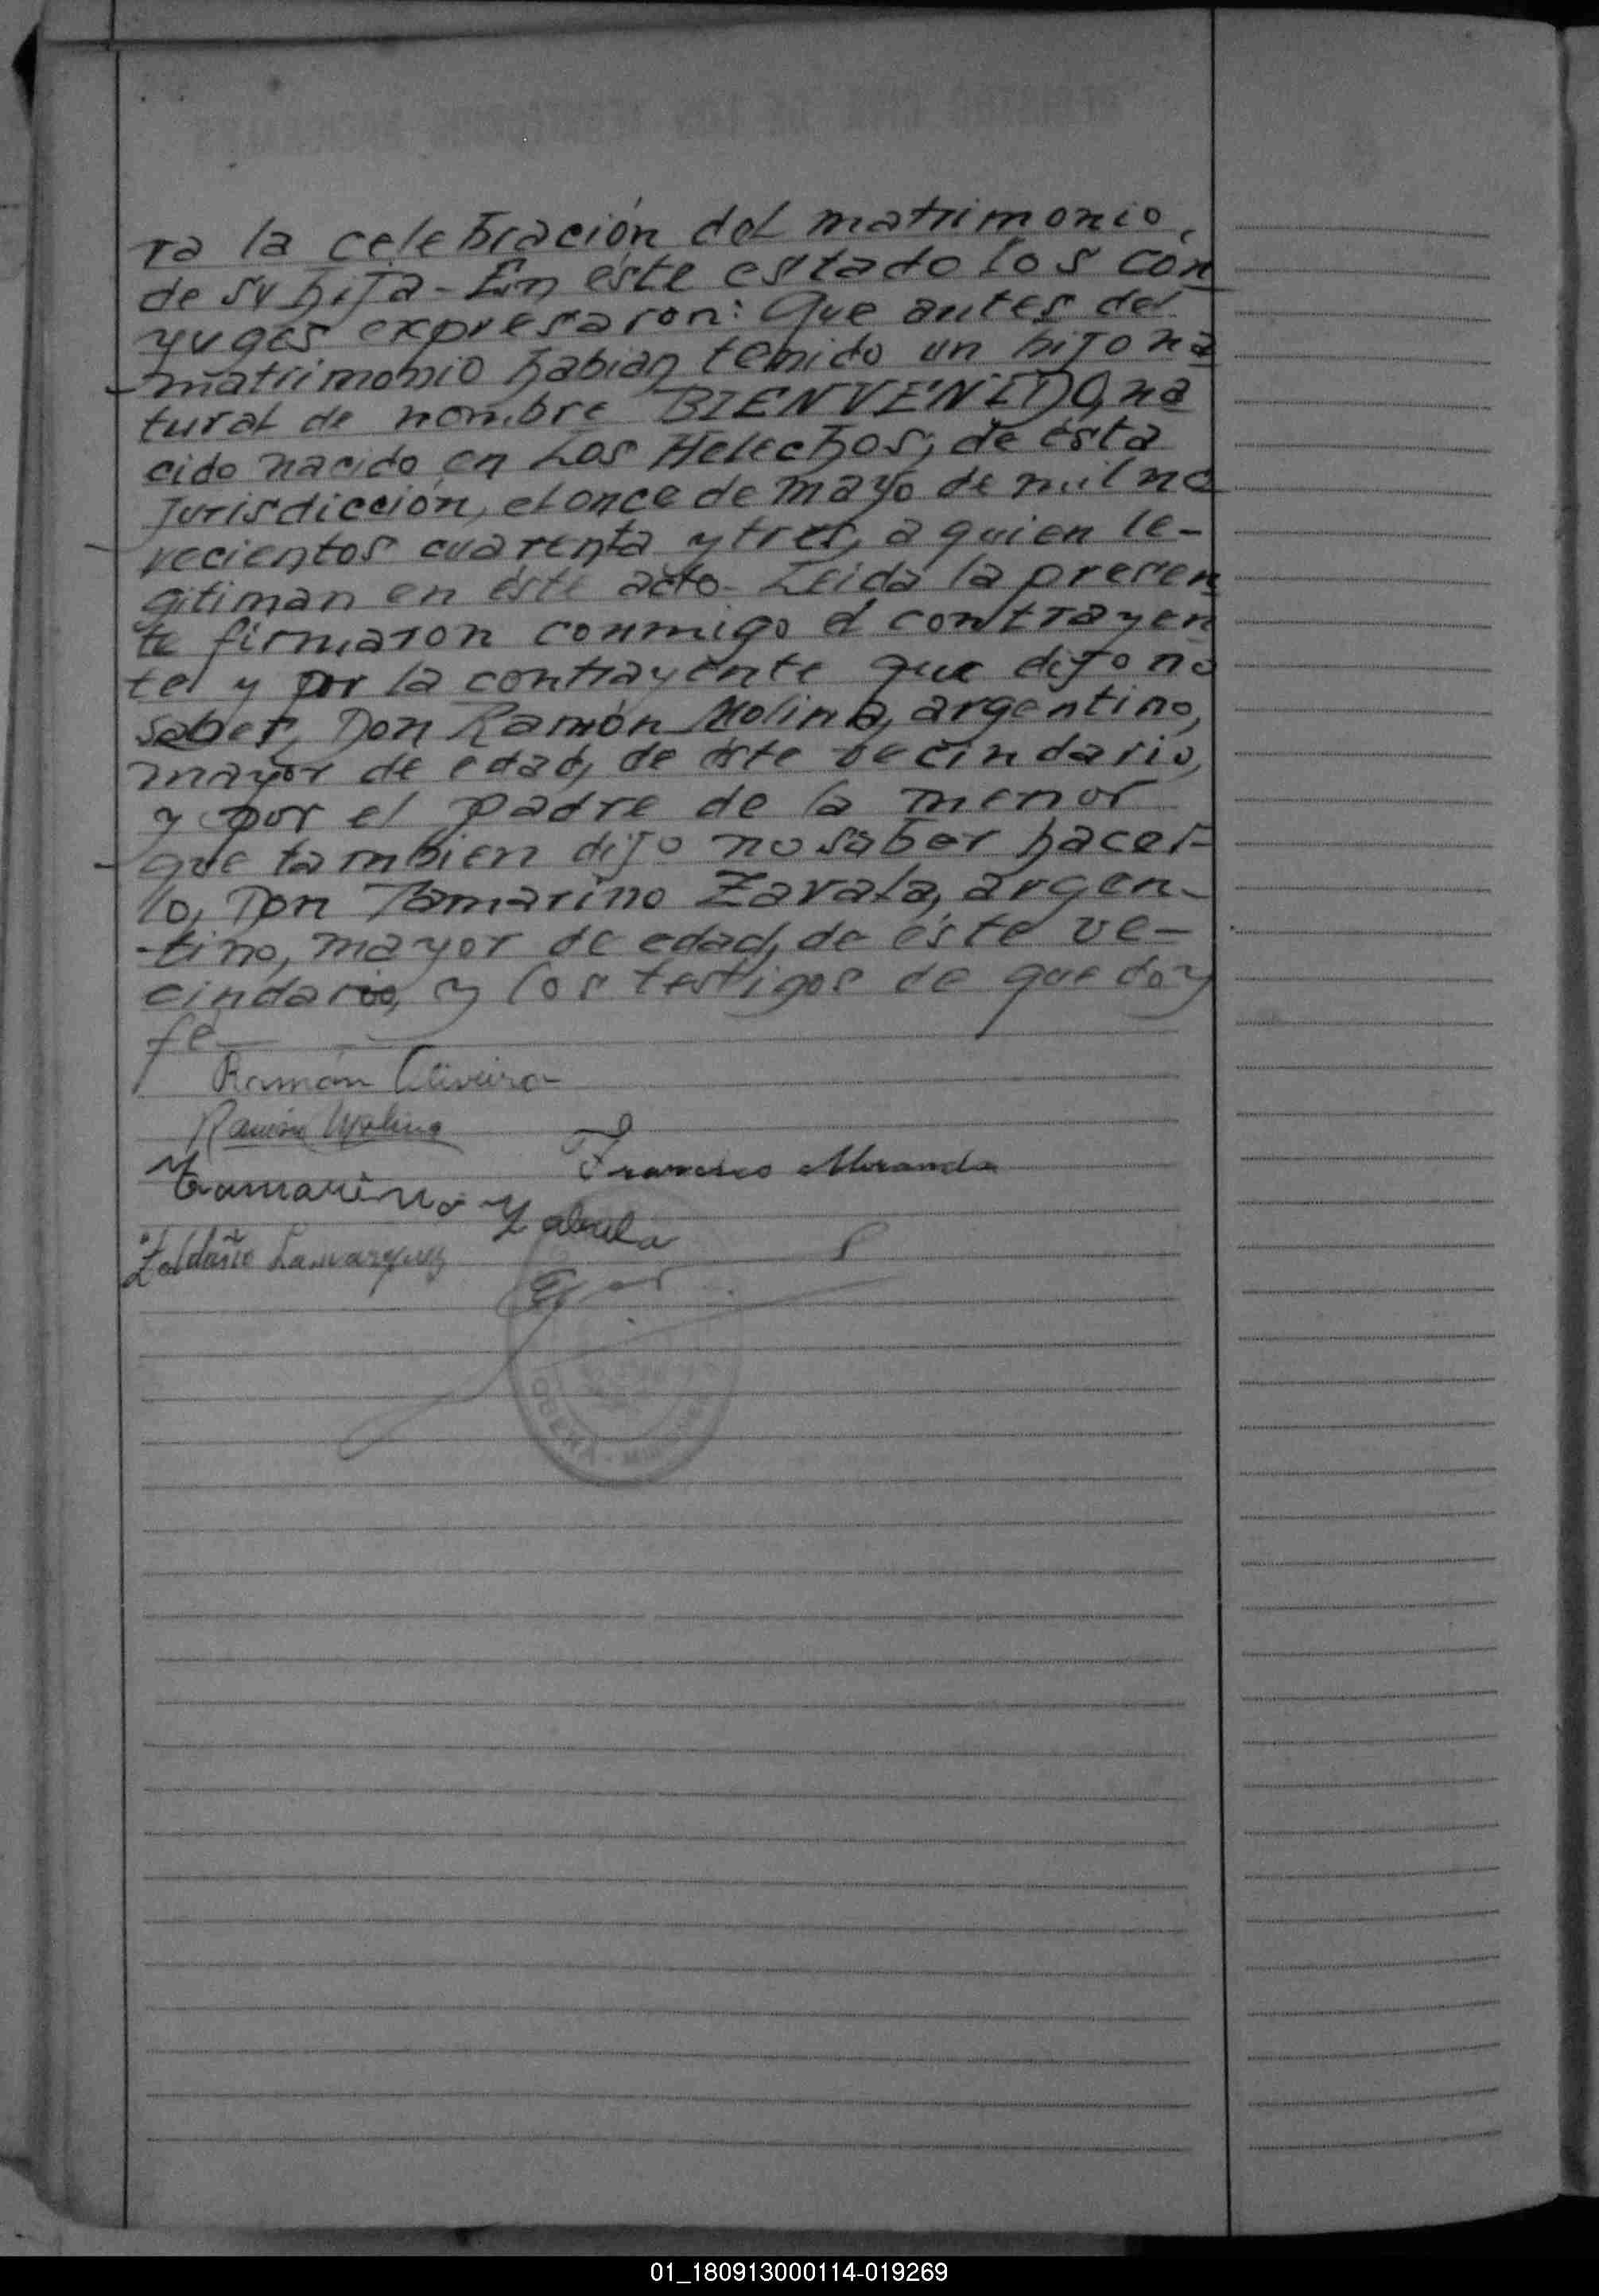 ra la celebración del matrimonio,
de su hija - En éste estado los cón
yuges expresaron: Que antes del
matrimonio habian tenido un hijo na
tural de nombre BIENVENIDO, na
cido nacido en Los Helechos, de ésta
Jurisdicción, el once de mayo de mil no
vecientos cuarenta y tres, a quien le-
gitiman en éste acto - Leida la presen
te firmaron conmigo el contrayen
te y por la contrayente que dijo no
saber, Don Ramón Molina, argentino,
mayor de edad, de éste vecindario,
y por el padre de la menor
que tambien dijo no saber hacer-
lo, Don Tamarino Zavala, argen-
-tino, mayor de edad, de éste ve-
cindario, y los testigos de que doy
fé
Ramón Oliveira
Ramón Molina
Francisco Miranda
Tamarino Zabala
OBERA - MISIONES
01_180913000114-019269